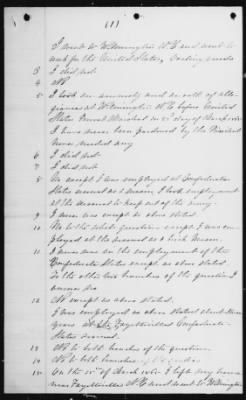 (1)
I went to Wilmington N.C. and went to
work for the United States,
3 I did not
4 No
5 I took an amnesty and oath of alle-
giance at Wilmington N.C. before United
States Provost Marshal in day of
I have never been pardoned by the President
Never needed any
6 I did not
7 I did not
8 No except I was employed at Confederate
States arsenal as a mason, I took employment
at the arsenal to keep out of the army.
9 I never was except as above stated.
10 No to the whole question except I was em-
ployed at the arsenal as a brick mason.
11 I never was in the employment of the
Confederate States except as above stated.
To the other two branches of the question I
answer no
12 No except as above stated.
I was employed as above stated about three
years at the Fayetteville Confederate
States arsenal.
13 No to both branches of the question.
14 No to both branches of the question
15 On the of March 1865 I left my home
near Fayetteville N.C. and went to Wilmington